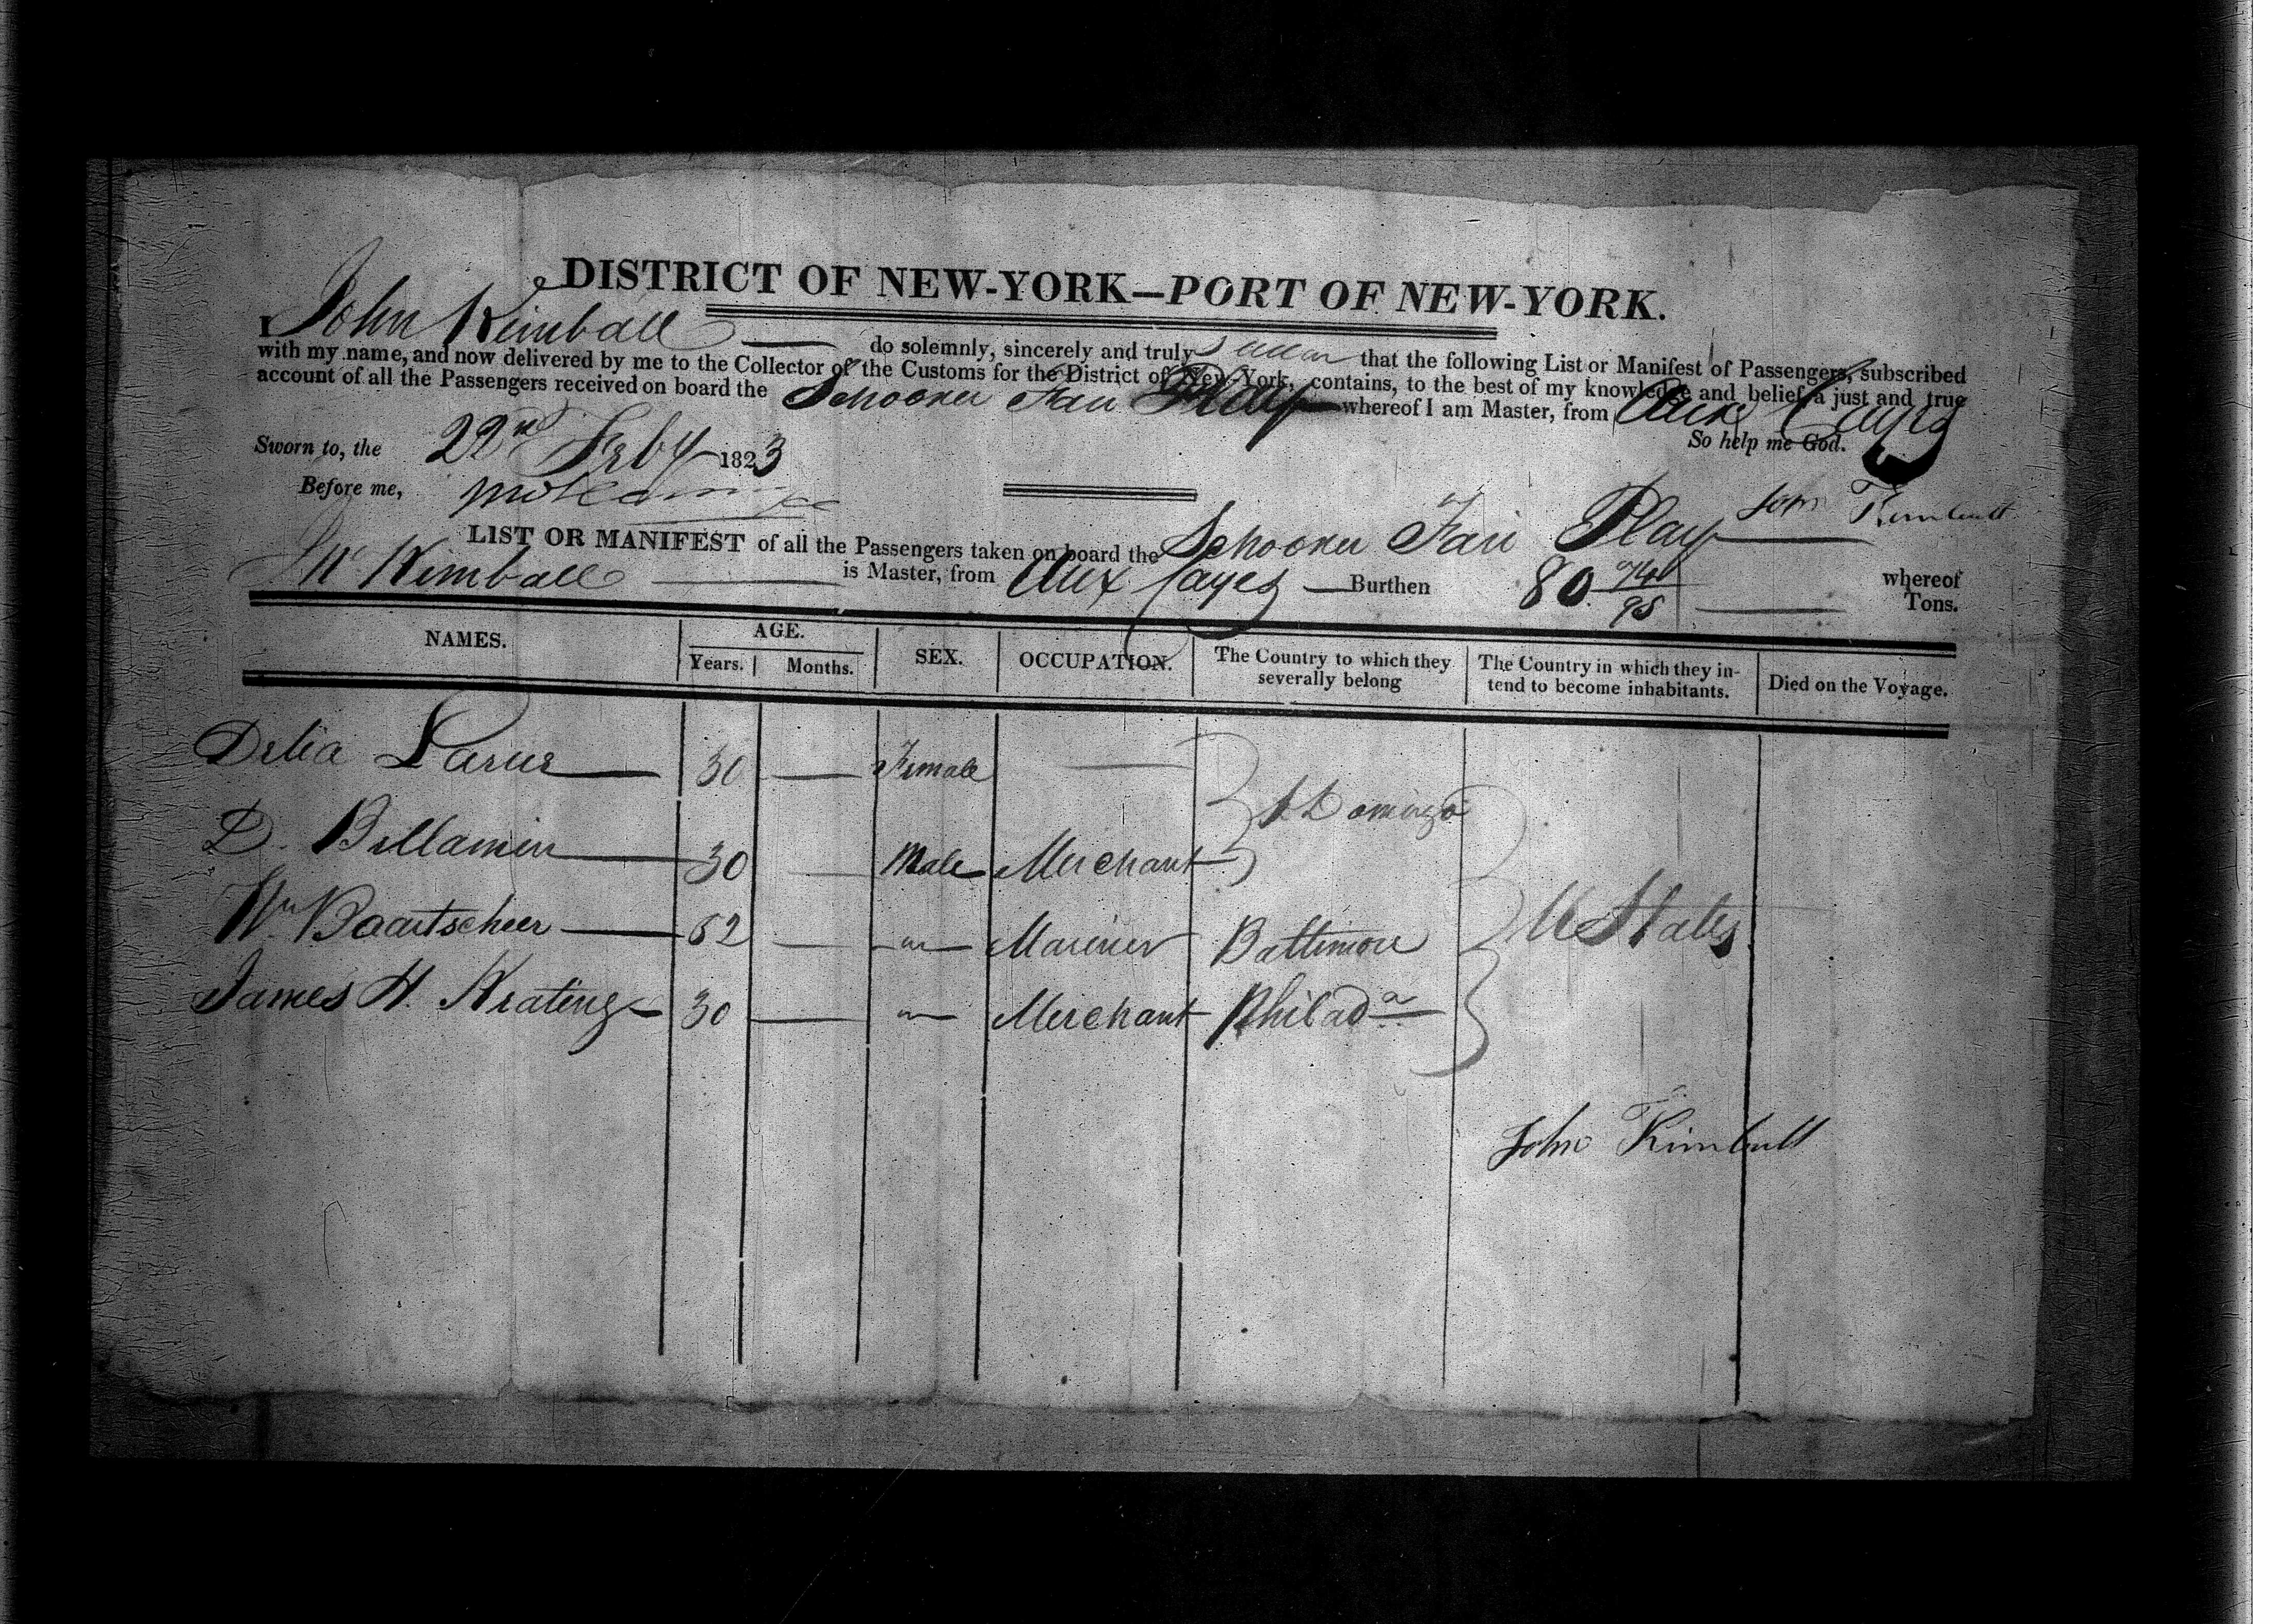 DISTRICT OF NEW-YORK—PORT OF NEW-YORK.
I John Kimball do solemnly, sincerely and truly swear that the following List or Manifest of Passengers, subscribed
with my name, and now delivered by me to the Collector of the Customs for the District of New-York, contains, to the best of my knowledge and belief, a just and true
account of all the Passengers received on board the Schooner Fair Play whereof I am Master, from Aux Cayes
So help me God.
Sworn to, the 22nd Feby 1823
Before me,
John Kimball
LIST OR MANIFEST of all the Passengers taken on board the Schooner Fair Play whereof
Jno Kimball is Master, from Aux Cayes Burthen 80 74/95 Tons.
NAMES. AGE. Years. Months. SEX. OCCUPATION. The Country to which they severally belong The Country in which they intend to become inhabitants. Died on the Voyage.
Delia Larue 30 — Female —
St Domingo
D. Bellamin 30 — Male Merchant
Wm Baartscheer 62 — " Mariner Baltimore U States
James H. Keating 30 — " Merchant Philada
John Kimball